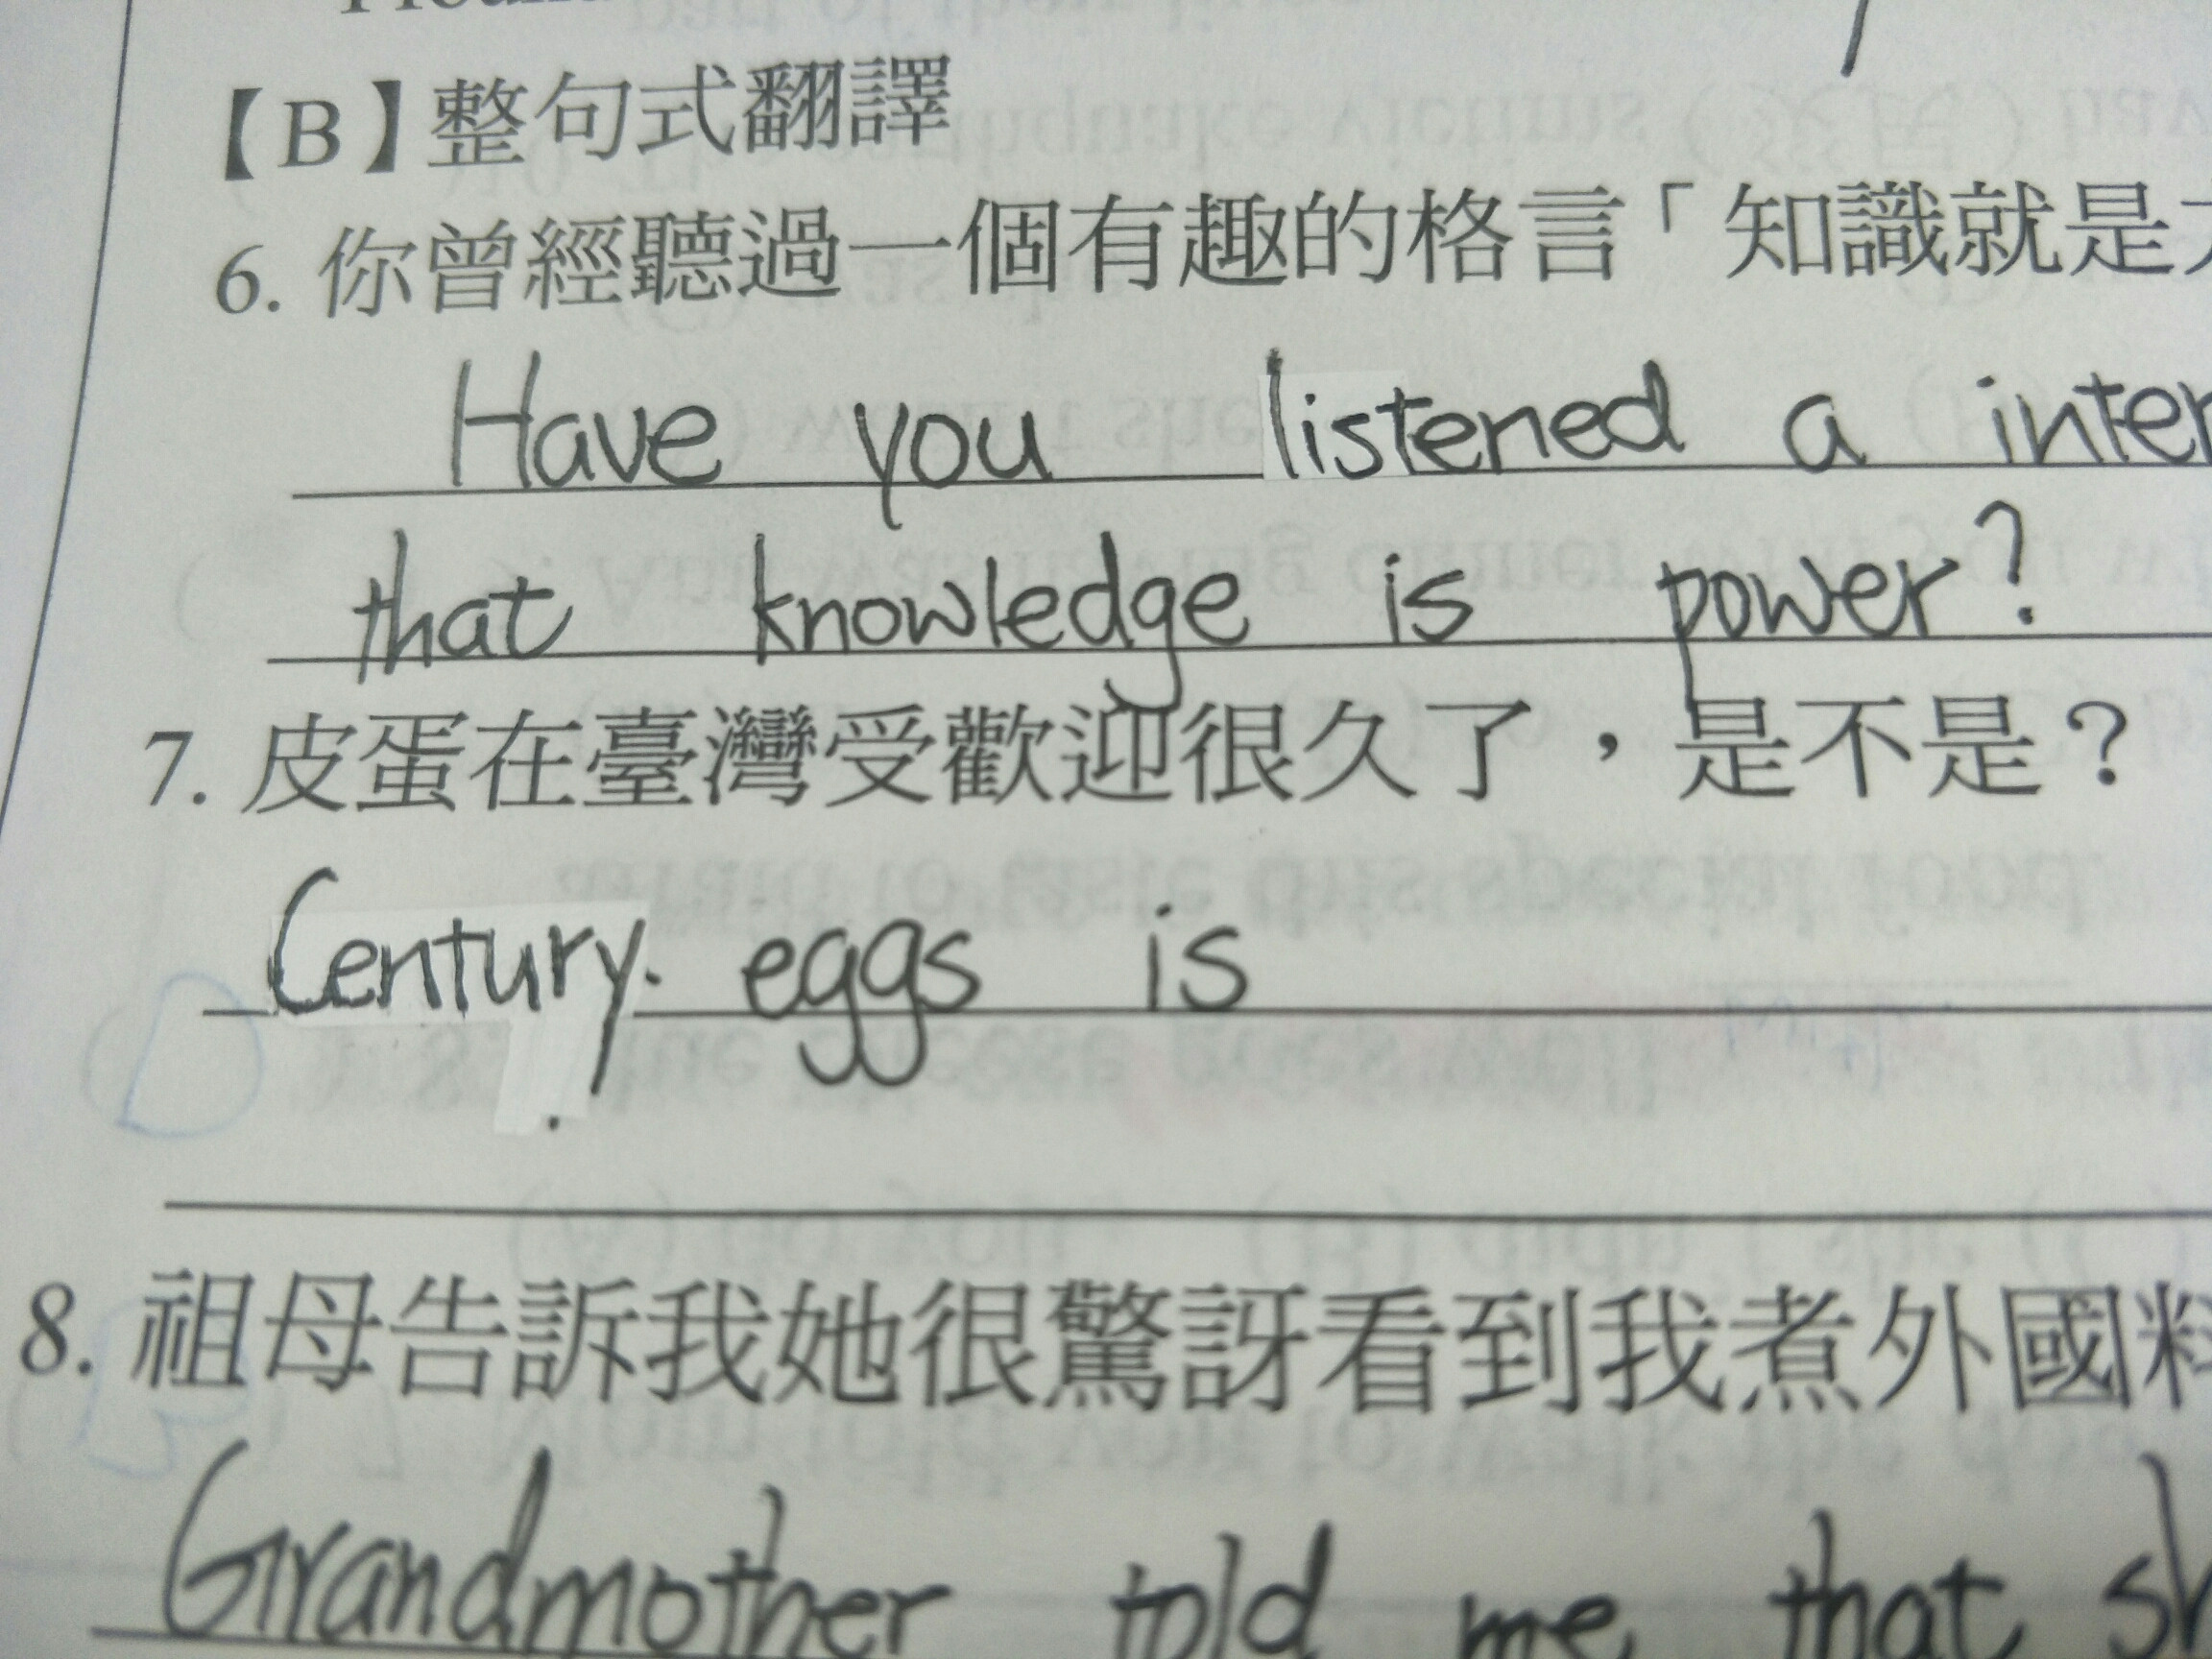 【B】整句式翻譯
6. 你曾經聽過一個有趣的格言「知識就是
Have you listened a inter
that knowledge is power?
7. 皮蛋在臺灣受歡迎很久了，是不是？
Century. eggs is
8. 祖母告訴我她很驚訝看到我煮外國料
Grandmother told me that sh